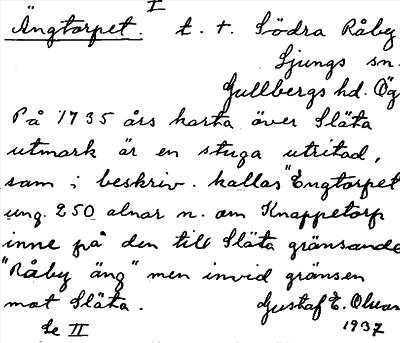 I
Ängtorpet. t. t. Södra Råby
Ljungs sn.
Gullbergs hd. Ög
På 1735 års karta över Släta
utmark är en stuga utritad,
som i beskriv. kallas "Engtorpet
ung. 250 alnar n. om Knappetorp
inne på den till Släta gränsande
"Råby äng" men invid gränsen
mot Släta. Gustaf E. Olsson
Se II 1937